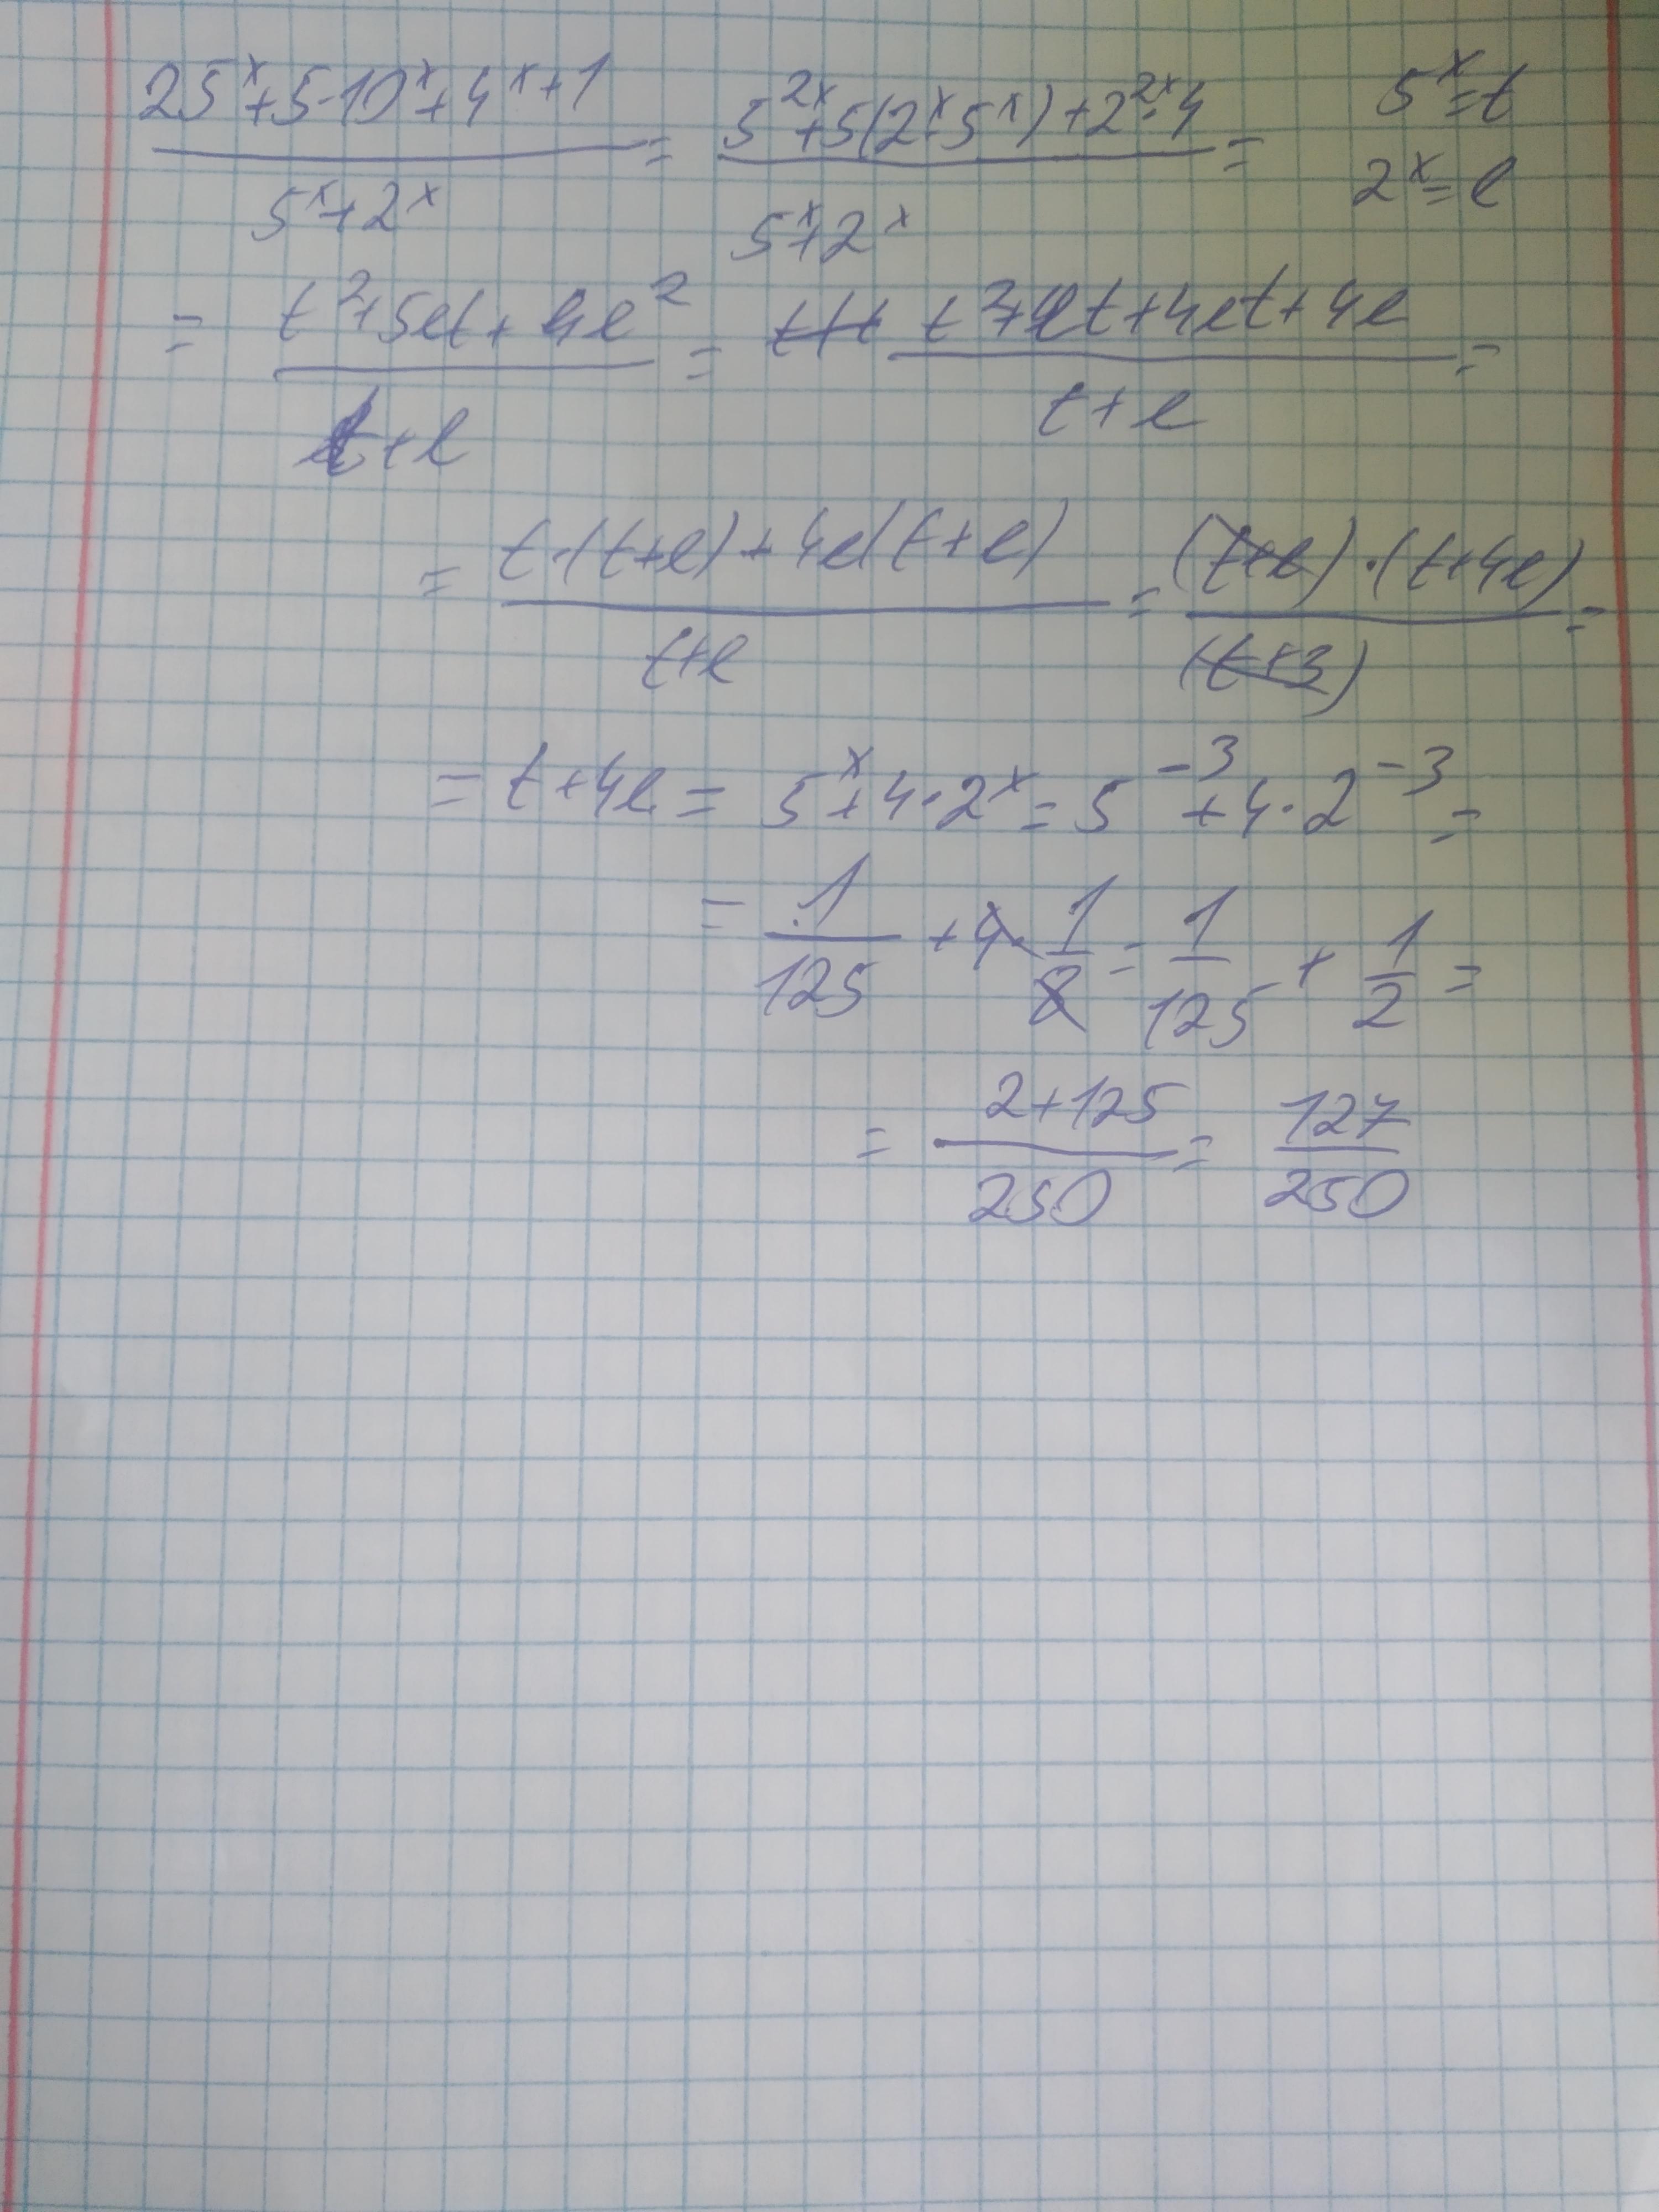 (25^x + 5·10^x + 4^(x+1)) / (5^x + 2^x) = (5^(2x) + 5(2^x·5^x) + 2^(2x)·4) / (5^x + 2^x) = 5^x = t
2^x = l
= (t^2 + 5lt + 4l^2) / (t + l) = (t^2 + lt + 4lt + 4l) / (t + l) =
= (t·(t+l) + 4l(t+l)) / (t+l) = ((t+l)·(t+4l)) / (t+3) =
= t + 4l = 5^x + 4·2^x = 5^(-3) + 4·2^(-3) =
= 1/125 + 4·1/8 = 1/125 + 1/2 =
= (2+125)/250 = 127/250